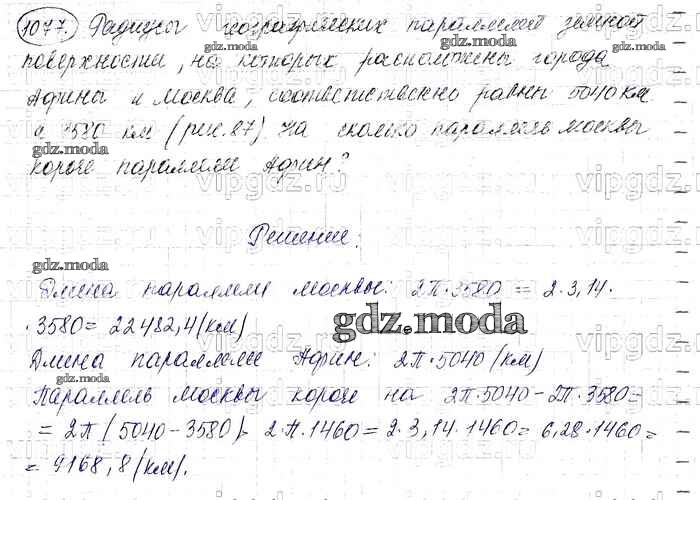 1077. Радиусы географических параллелей земной
поверхности, на которых расположены города
Афины и Москва, соответственно равны 5040 км
и 3580 км (рис. 87). На сколько параллель Москвы
короче параллели Афин?
Решение:
Длина параллели Москвы: 2π·3580 = 2·3,14·
·3580 = 22482,4 (км)
Длина параллели Афин: 2π·5040 (км)
Параллель Москвы короче на 2π·5040 - 2π·3580 =
= 2π(5040 - 3580) = 2·π·1460 = 2·3,14·1460 = 6,28·1460 =
= 9168,8 (км).
gdz.moda
vipgdz.ru